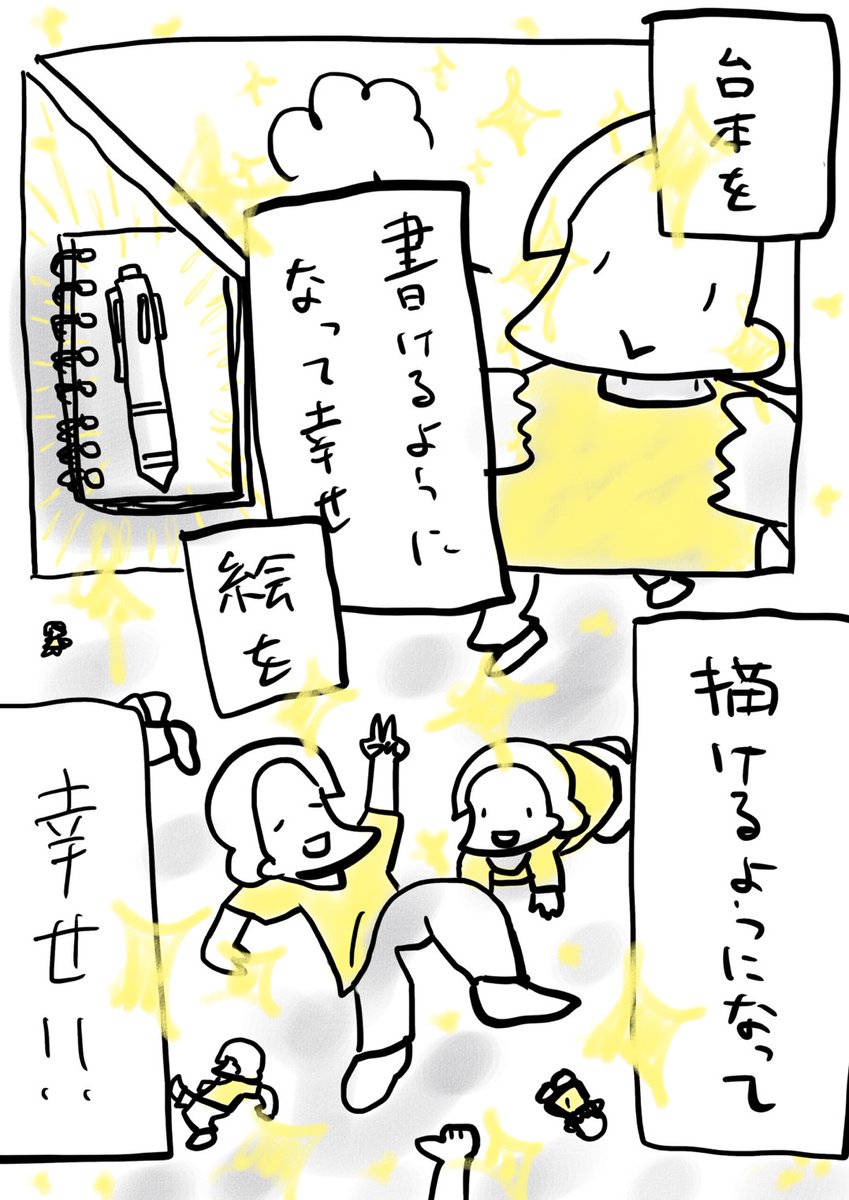 台本を
書けるように
なって幸せ
絵を
描けるようになって
幸せ!!